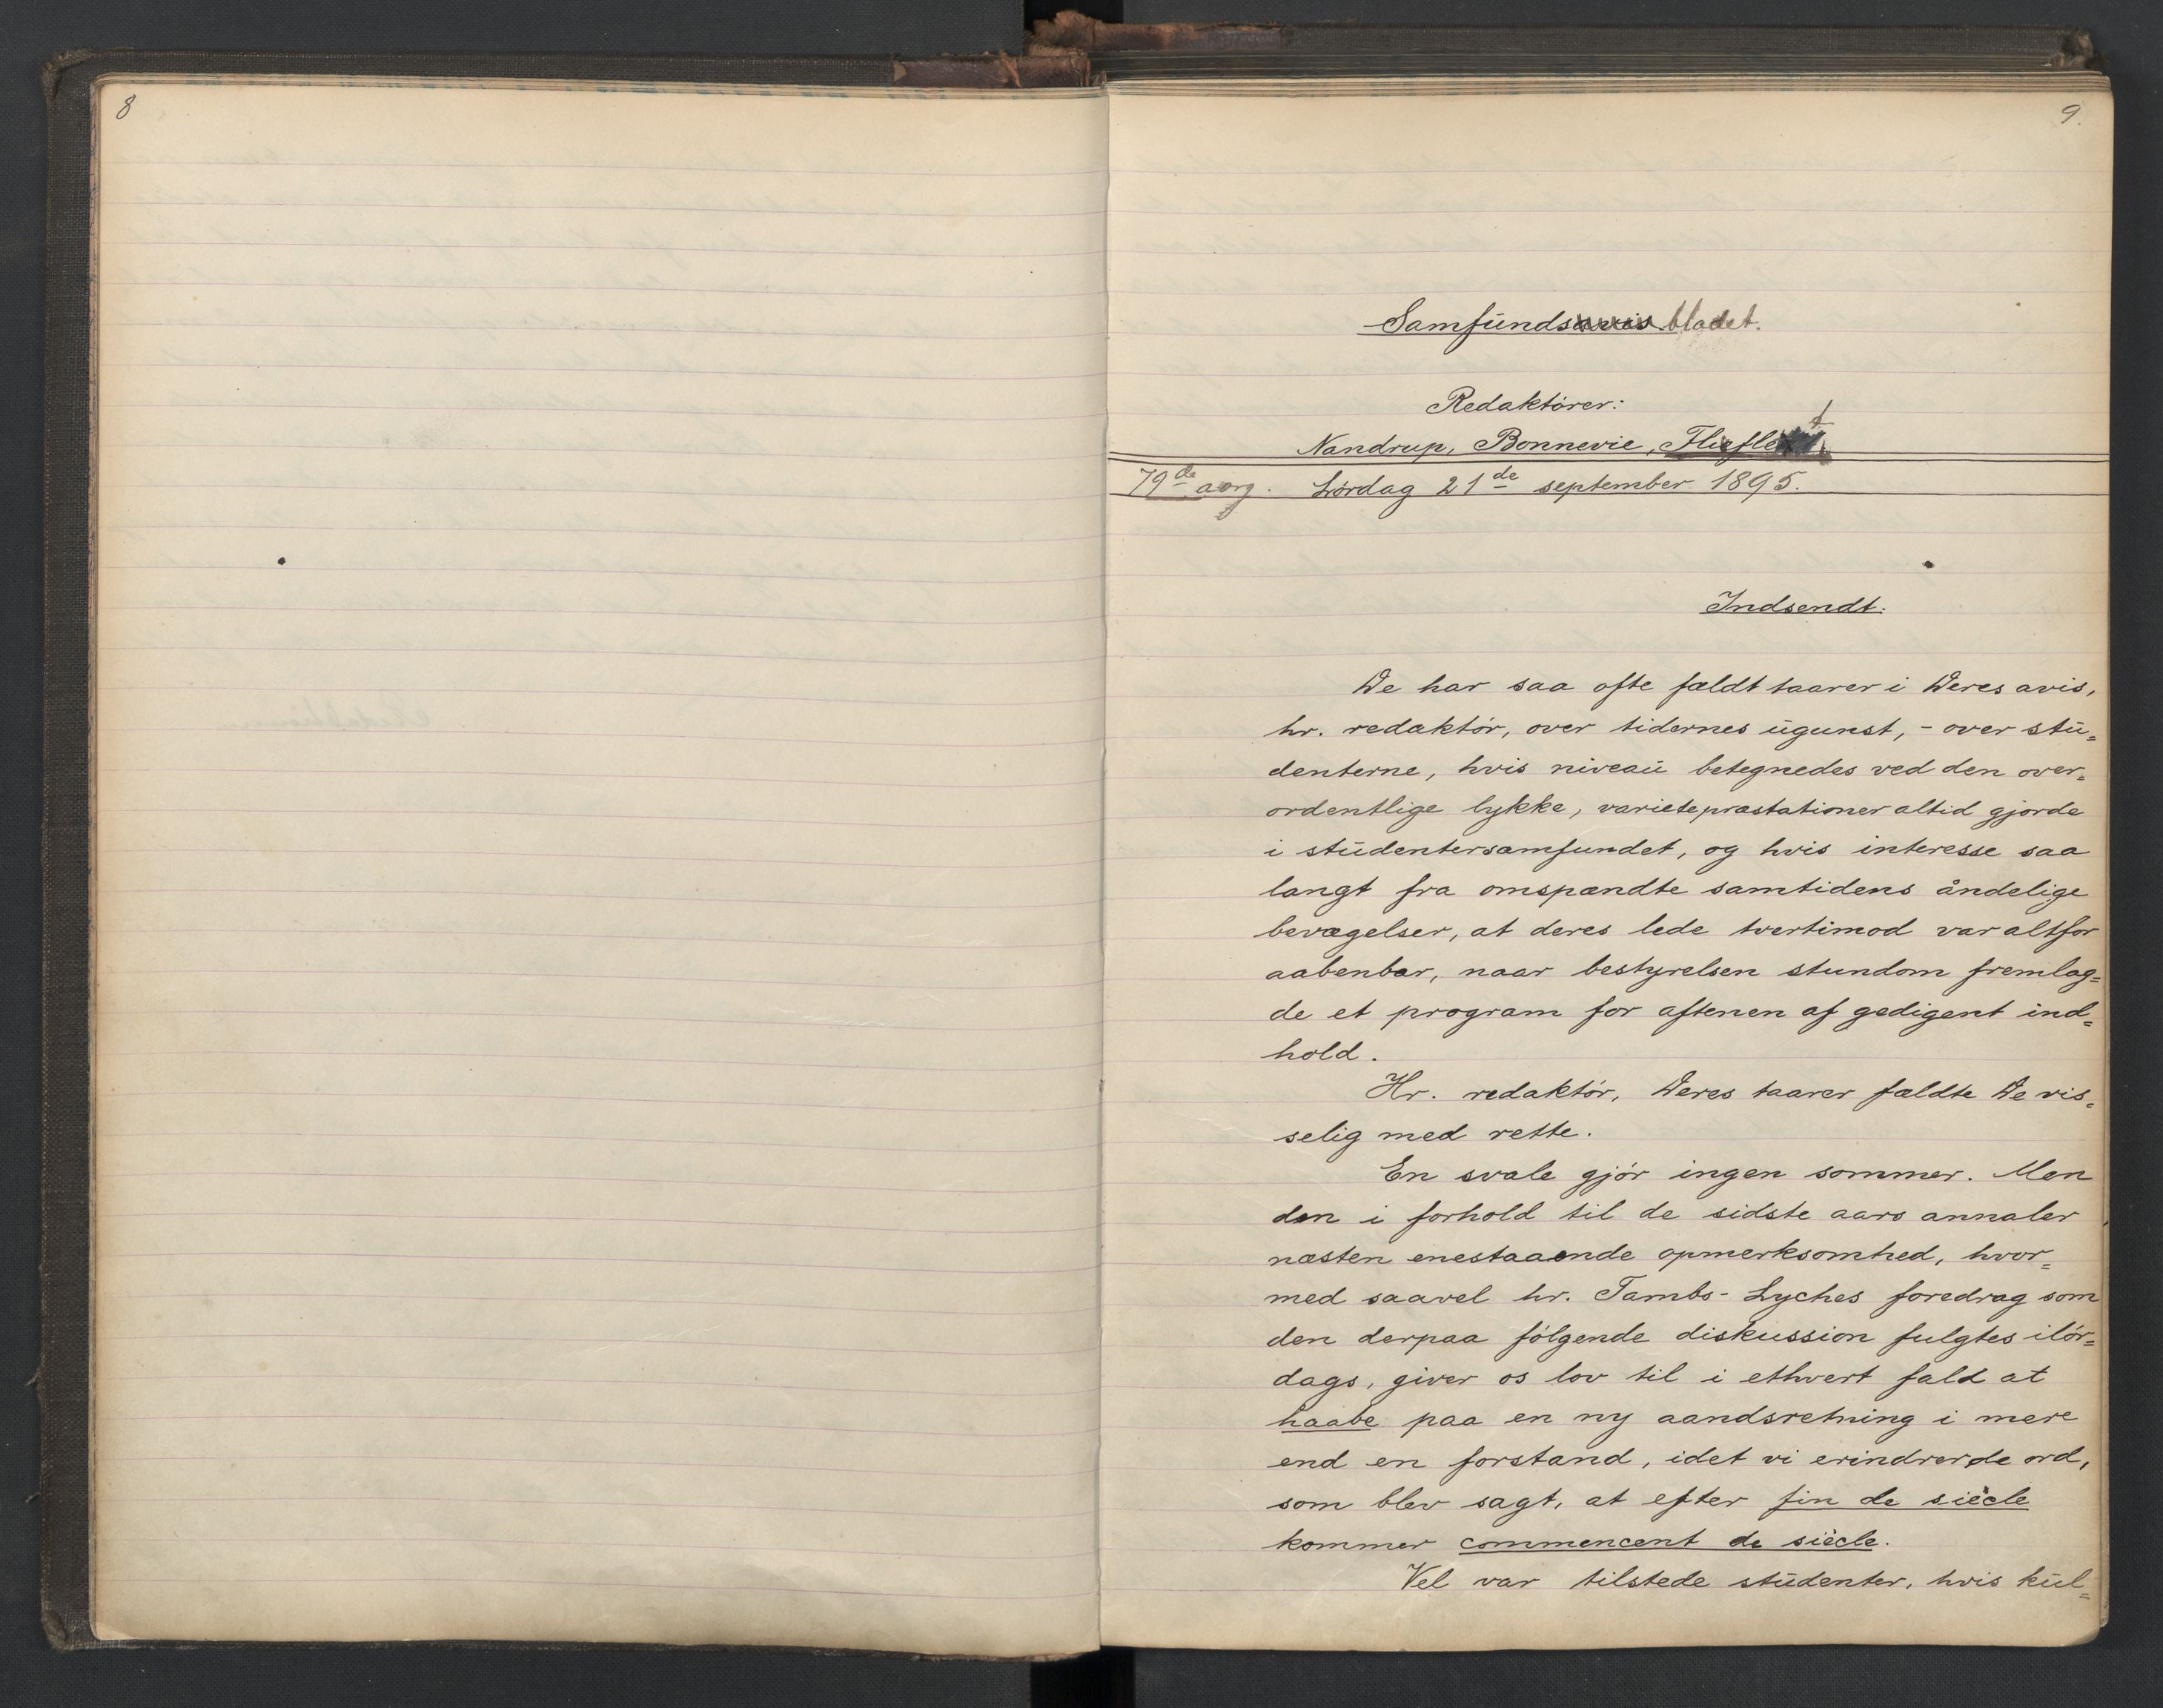 8
9.
Samfundsavis bladet.
Redaktører:
Nandrup, Bonnevie,
79de aarg. Lördag 21de september 1895.
Indsendt.
De har saa ofte fældt taarer i Deres avis,
hr. redaktör, over tidernes ugunst, - over stu=
denterne, hvis niveau betegnedes ved den over=
ordentlige lykke, varietepræstationer altid gjorde
i studentersamfundet, og hvis interesse saa
langt fra omspændte samtidens åndelige
bevægelser, at deres lede tvertimod var altfor
aabenbar, naar bestyrelsen stundom fremlag=
de et program for aftenen af gedigent ind=
hold.
Hr. redaktör, Deres taarer fældte De vis=
selig med rette.
En svale gjör ingen sommer. Men
den i forhold til de sidste aars annaler
næsten enestaaende opmerksomhed, hvor=
med saavel hr. Tambs-Lyches foredrag som
den derpaa fölgende diskussion fulgtes ilör=
dags, giver os lov til i ethvert fald at
haabe paa en ny aandsretning i mere
end en forstand, idet vi erindrer de ord,
som blev sagt, at efter fin de siècle
kommer commencent de siècle.
Vel var tilstede studenter, hvis kul=